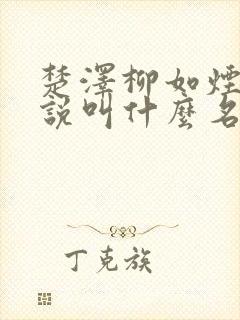 楚澤柳如煙
說叫什麼名
丁克族